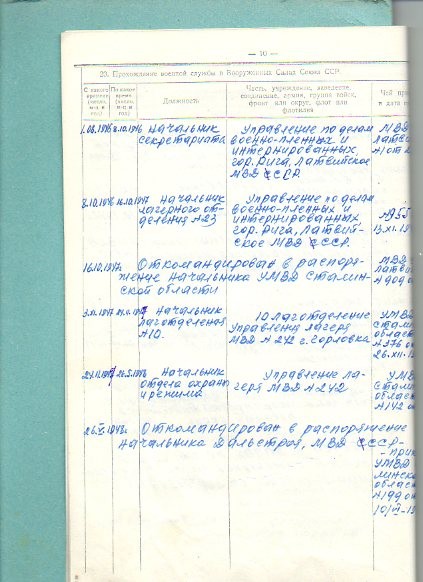 — 10 —
20. Прохождение военной службы в Вооруженных Силах Союза ССР
С какого времени (число, м-ц и год)
По какое время (число, м-ц и год)
Должность
Часть, учреждение, заведение, соединение, армия, группа войск, фронт или округ, флот или флотилия
Чей
и дата
Начальник
секретариата
Управление по делам
военно-пленных и
интернированных,
гор. Рига, Латвийское
МВД СССР.
МВД
8.10.1946
16.10.1947
Начальник
лагерного от-
деления №23
Управление по делам
военно-пленных и
интернированных,
гор. Рига, Латвий-
ское МВД СССР.
16.10.1947г.
Откомандирован в распоря-
жение начальника УМВД Сталин-
ской области
МВД
Начальник
лаготделения
№10.
10 лаготделение
Управления лагеря
МВД №242 г. Горловка
УМВД
Сталин
област
№376 о
26.XII.
Начальник
отдела охраны
и режима
Управление ла-
геря МВД №242
УМВД
Сталин
област
№142
Откомандирован в распоряжение
начальника Дальстроя, МВД СССР-
- при
УМВД
линской
област
№199 о
10/VI-19